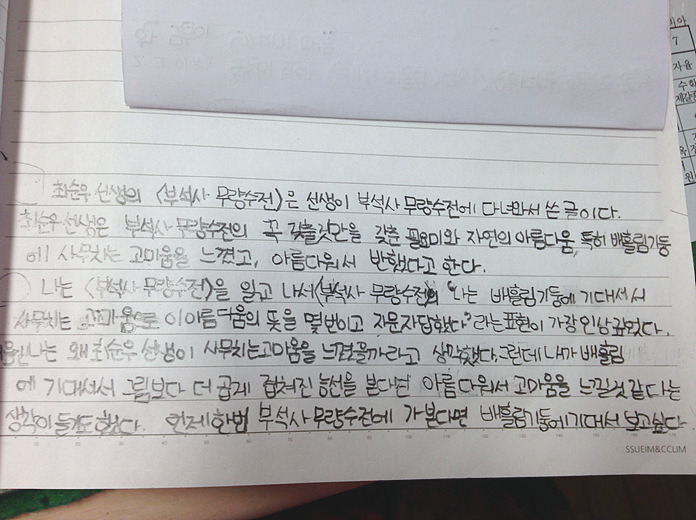 최순우 선생의 <부석사 무량수전>은 선생이 부석사 무량수전에 다녀와서 쓴 글이다.
최순우 선생은 부석사 무량수전의 꼭 갖출것만을 갖춘 필요미와 자연의 아름다움, 특히 배흘림기둥
에 사무치는 고마움을 느꼈고, 아름다워서 반했다고 한다.
나는 <부석사 무량수전>을 읽고 나서 (부석사 무량수전의 "나는 배흘림기둥에 기대서서
사무치는 고마움으로 이아름다움의 뜻을 몇번이고 자문자답했다"라는표현이 가장인상깊었다.
나는 왜최순우 선생이 사무치는고마움을 느꼈을까라고 생각했다. 그런데 내가 배흘림
에 기대서서 그림보다 더 곱게 겹쳐진 능선을 본다면 아름다워서 고마움을 느낄것 같다는
생각이 들기도 했다. 언제한번 부석사 무량수전에 가본다면 배흘림기둥에기대서 보고싶다.
SSUEIM&CCLIM
7
자율
수학